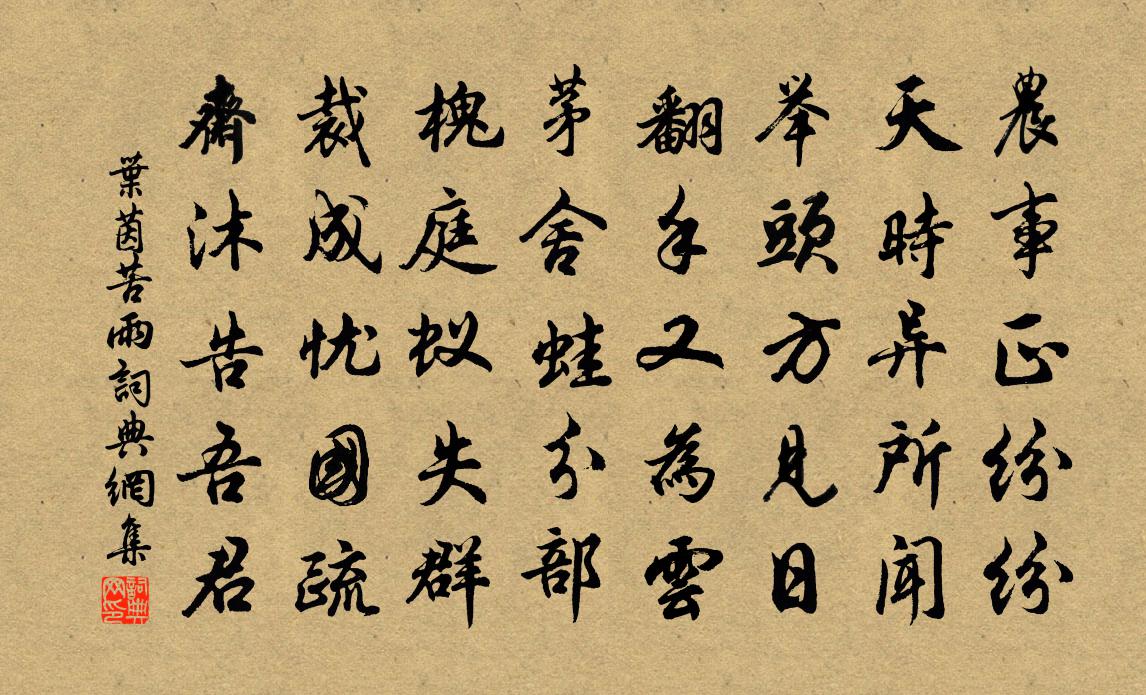 農事正紛紛
天時异所聞
举頭方見日
翻手又為雲
茅舍蛙分部
槐庭蚁失群
裁成忧國疏
齋沐告吾君
葉茵苦雨詞典網集
詞典网印